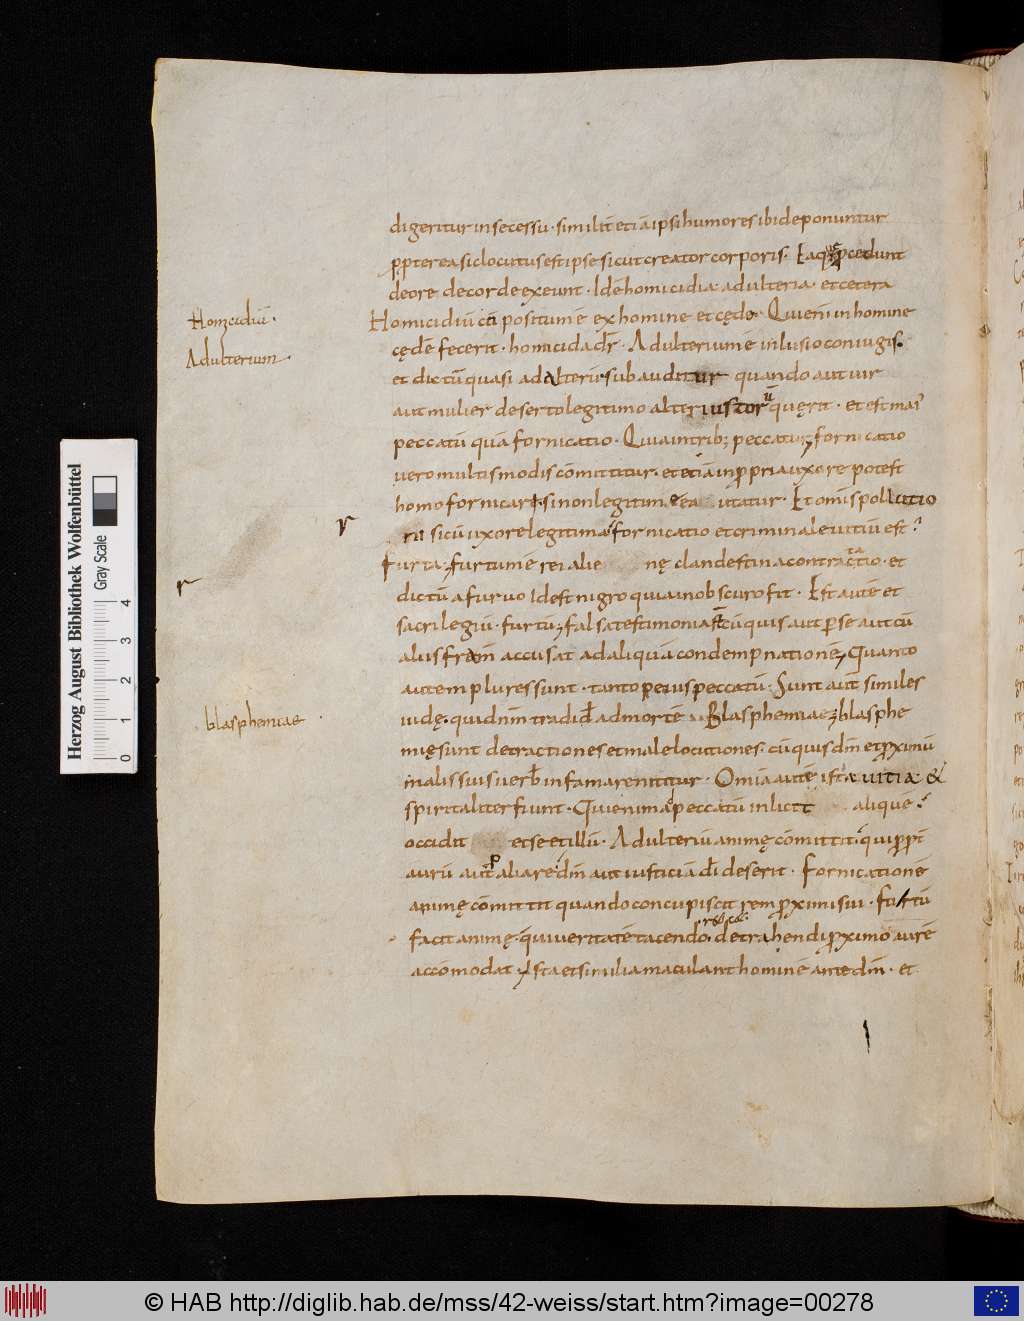 digeritur in secessu · similit̄ eciā ipsi humores ibi deponuntur
ꝓpterea sic locutus est ipse sicut creator corporis. Ea q̄ ꝓcedunt
de ore de corde exeunt · Id ē homicidia adulteria et cetera
Homicidiū
Homicidiū cōpositum ē ex homine et cędo · Qui eni in homine
Adulterium.
cędē fecerit · homicida dr̄ · Adulterium ē inlusio coniugis.
et dictū quasi ad alteriꝰ subauditur quando aut uir
aut mulier deserto legitimo alterius torū quęrit · et est mai
peccatū quā fornicatio · Quia in tribꝫ peccatur ; fornicatio
uero multis modis cōmittitur · et etiā in ꝓpria uxore potest
homo fornicari · si non legitim ea utatur · Et omīs pollutio
r
ni sicū uxore legitima fornicatio et criminale uitiū est
Furta ; furtum ē rei alie nę clandestina contractatio · et
r
dictū a furuo id est nigro quia in obscuro fit · Est autē et
sacrilegiū · furtū ; falsa testimonia st cū quis aut ꝑ se aut cū
alus frem accusat ad aliquā condempnationē ; Quanto
autem plures sunt · tanto peius peccatū · Sunt aut̄ similes
blasphemiae
iudę · qui dnm tradid̄ ad mortē Blasphemiae ; blasphe
mię sunt detractiones et male locutiones · cū quis dm̄ et ꝓximū
malis suis uerb̄ infamare nititur · Omīa autē ista uitia &
spiritaliter fiunt · Qui enim ap peccatū inlicit aliquē
occidit et se et illū · Adulteriū animę cōmittit · qui ꝓpt
aurū aut ꝓ alia re dm̄ aut iusticiā dī deserit · Fornicationē
animę cōmittit quando concupiscit rem ꝓximi sui · furtū
facit animę · qui ueritatē tacendo · detrahendi ꝓximo aurē
accōmodat ; Ista et similia maculant hominē ante dm̄ · et
Herzog August Bibliothek Wolfenbüttel
Gray Scale
0 1 2 3 4
© HAB http://diglib.hab.de/mss/42-weiss/start.htm?image=00278